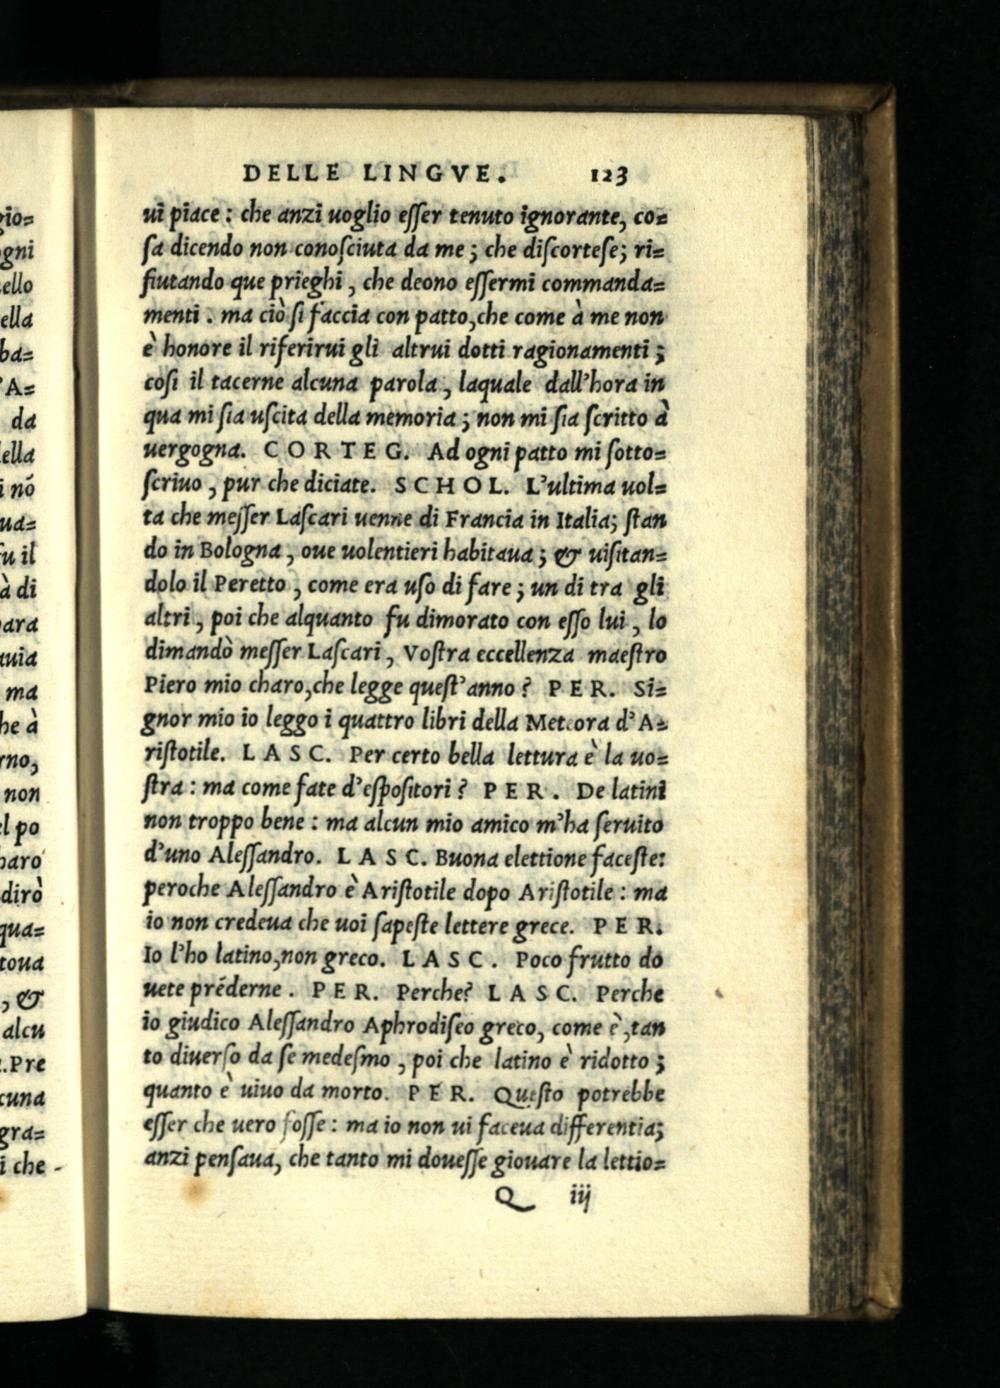 gio=
ogni
ello
ella
ba=
'A=
da
della
i nó
ua=
fu il
à di
para
auia
ma
he à
rno,
non
el po
haro
dirò
qua=
toua
, &
alcu
.Pre
cuna
gra=
i che -
DELLE LINGVE. 123
ui piace : che anzi uoglio eſſer tenuto ignorante, co=
ſa dicendo non conoſciuta da me ; che diſcorteſe; ri=
fiutando que prieghi , che deono eſſermi commanda=
menti . ma ciò ſi faccia con patto,che come à me non
è honore il riferirui gli altrui dotti ragionamenti ;
coſi il tacerne alcuna parola , laquale dall'hora in
qua mi ſia uſcita della memoria ; non mi ſia ſcritto à
uergogna. CORTEG. Ad ogni patto mi ſotto=
ſcriuo , pur che diciate. SCHOL. L'ultima uol=
ta che meſſer Laſcari uenne di Francia in Italia; ſtan
do in Bologna , oue uolentieri habitaua ; & uiſitan=
dolo il Peretto , come era uſo di fare ; un di tra gli
altri , poi che alquanto fu dimorato con eſſo lui , lo
dimandò meſſer Laſcari , Voſtra eccellenza maeſtro
Piero mio charo,che legge queſt'anno ? PER. Si=
gnor mio io leggo i quattro libri della Meteora d'A=
riſtotile. LASC. Per certo bella lettura è la uo=
ſtra : ma come fate d'eſpoſitori ? PER. De latini
non troppo bene : ma alcun mio amico m'ha ſeruito
d'uno Aleſſandro. LASC. Buona elettione faceſte:
peroche Aleſſandro è Ariſtotile dopo Ariſtotile : ma
io non credeua che uoi ſapeſte lettere grece. PER.
Io l'ho latino,non greco. LASC. Poco frutto do
uete préderne . PER. Perche? LASC. Perche
io giudico Aleſſandro Aphrodiſeo greco, come è ,tan
to diuerſo da ſe medeſmo , poi che latino è ridotto ;
quanto è uiuo da morto. PER. Queſto potrebbe
eſſer che uero foſſe : ma io non ui faceua differentia;
anzi penſaua, che tanto mi doueſſe giouare la lettio=
Q iij